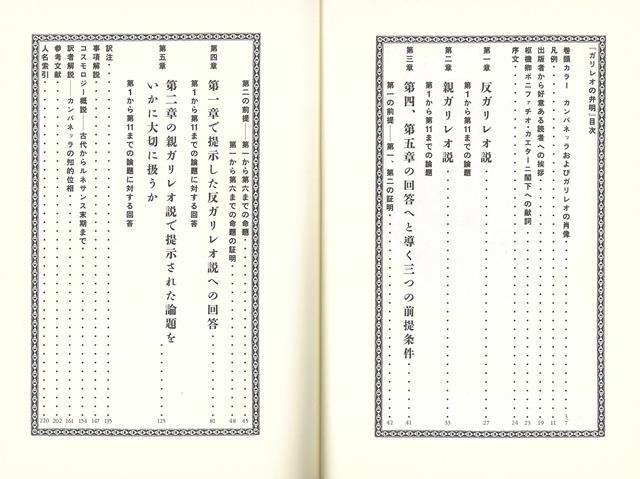 「ガリレオの弁明」目次
巻頭カラー カンパネッラおよびガリレオの肖像 3/7
凡例 11
出版者から好意ある読者への挨拶 19
枢機卿ボニファッチオ・カエターニ閣下への献詞 23
序文 24
第一章 反ガリレオ説 27
第1から第11までの論題
第二章 親ガリレオ説 33
第1から第11までの論題
第三章 第四、第五章の回答へと導く三つの前提条件 41
第一の前提——第一、第二の証明 42
第二の前提——第一から第六までの命題 45
第一から第六までの命題の証明 48
第四章 第一章で提示した反ガリレオ説への回答 81
第1から第11までの論題に対する回答
第五章 第二章の親ガリレオ説で提示された論題を
いかに大切に扱うか 125
第1から第11までの論題に対する回答
訳注 135
事項解説 147
コスモロジー概説——古代からルネサンス末期まで 154
訳者解説——カンパネッラの知的位相 161
参考文献 202
人名索引 220